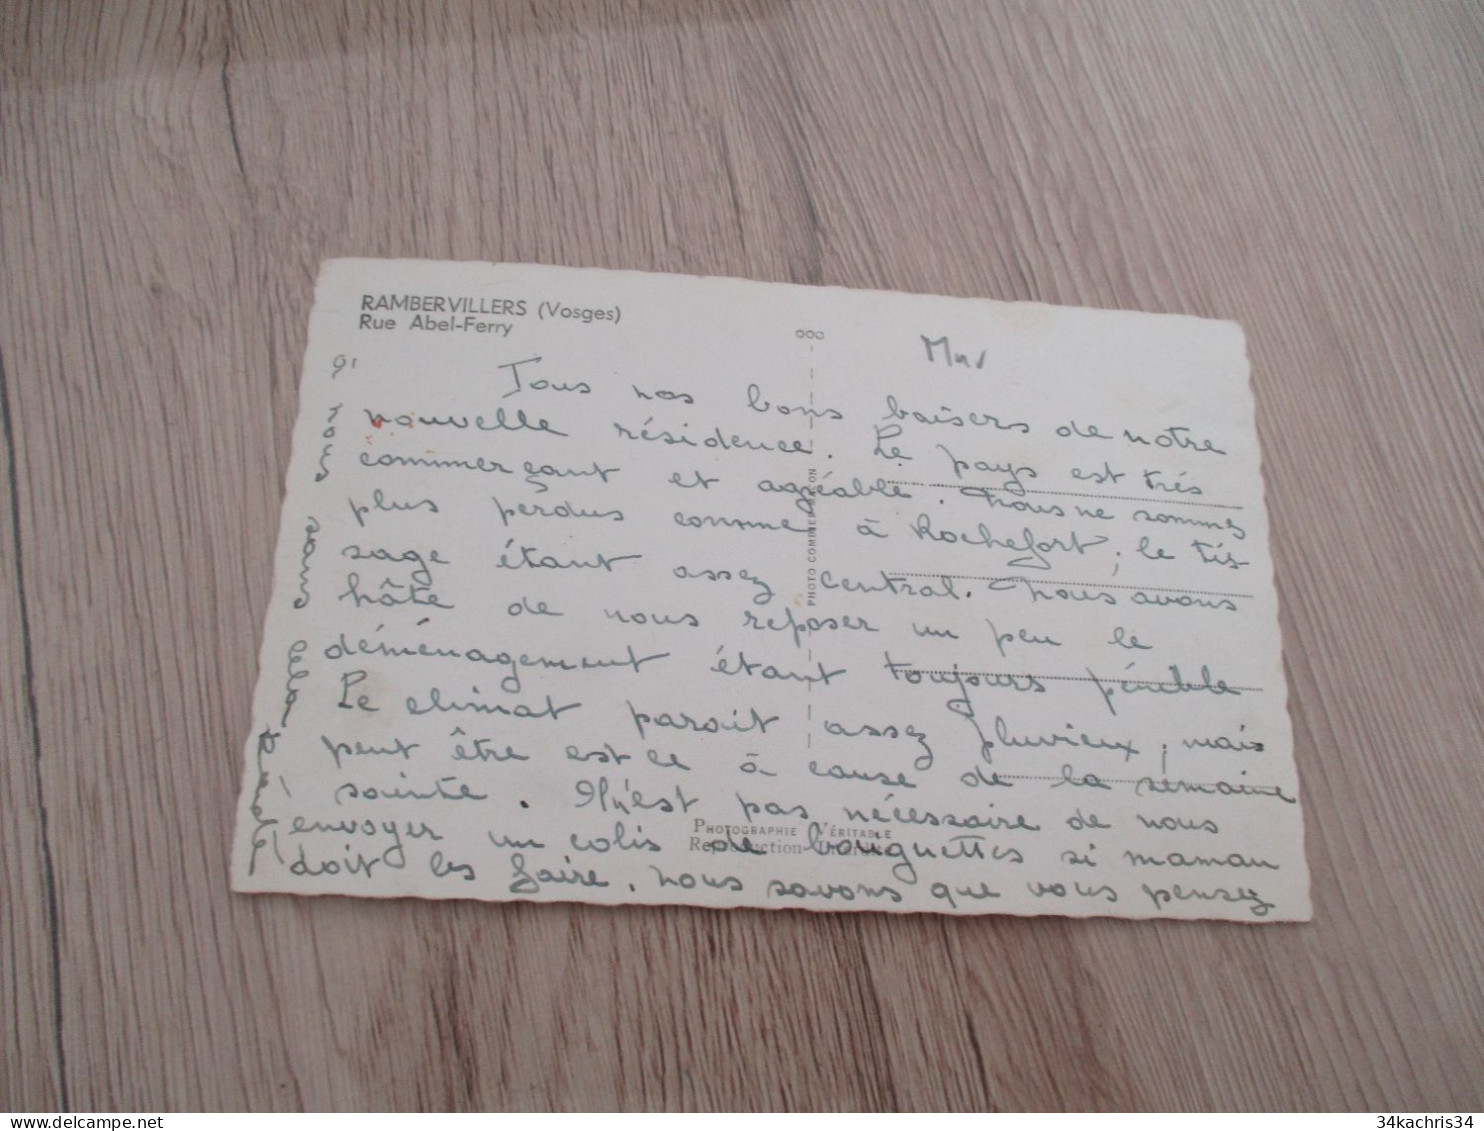 RAMBERVILLERS (Vosges)
Rue Abel-Ferry
Tous nos bons baisers de notre
nouvelle résidence. Le pays est très
commerçant et agréable. Nous ne sommes
plus perdus comme à Rochefort, le tis-
sage étant assez central. Nous avons
hâte de nous reposer un peu le
déménagement étant toujours pénible
Le climat parait assez pluvieux, mais
peut être est ce à cause de la semaine
sainte. Il n'est pas nécessaire de nous
envoyer un colis de bouguettes si maman
doit les faire. Nous savons que vous pensez
à nous sans cela
PHOTO COMBIER MACON
PHOTOGRAPHIE VÉRITABLE
Reproduction Interdite
34kachris34